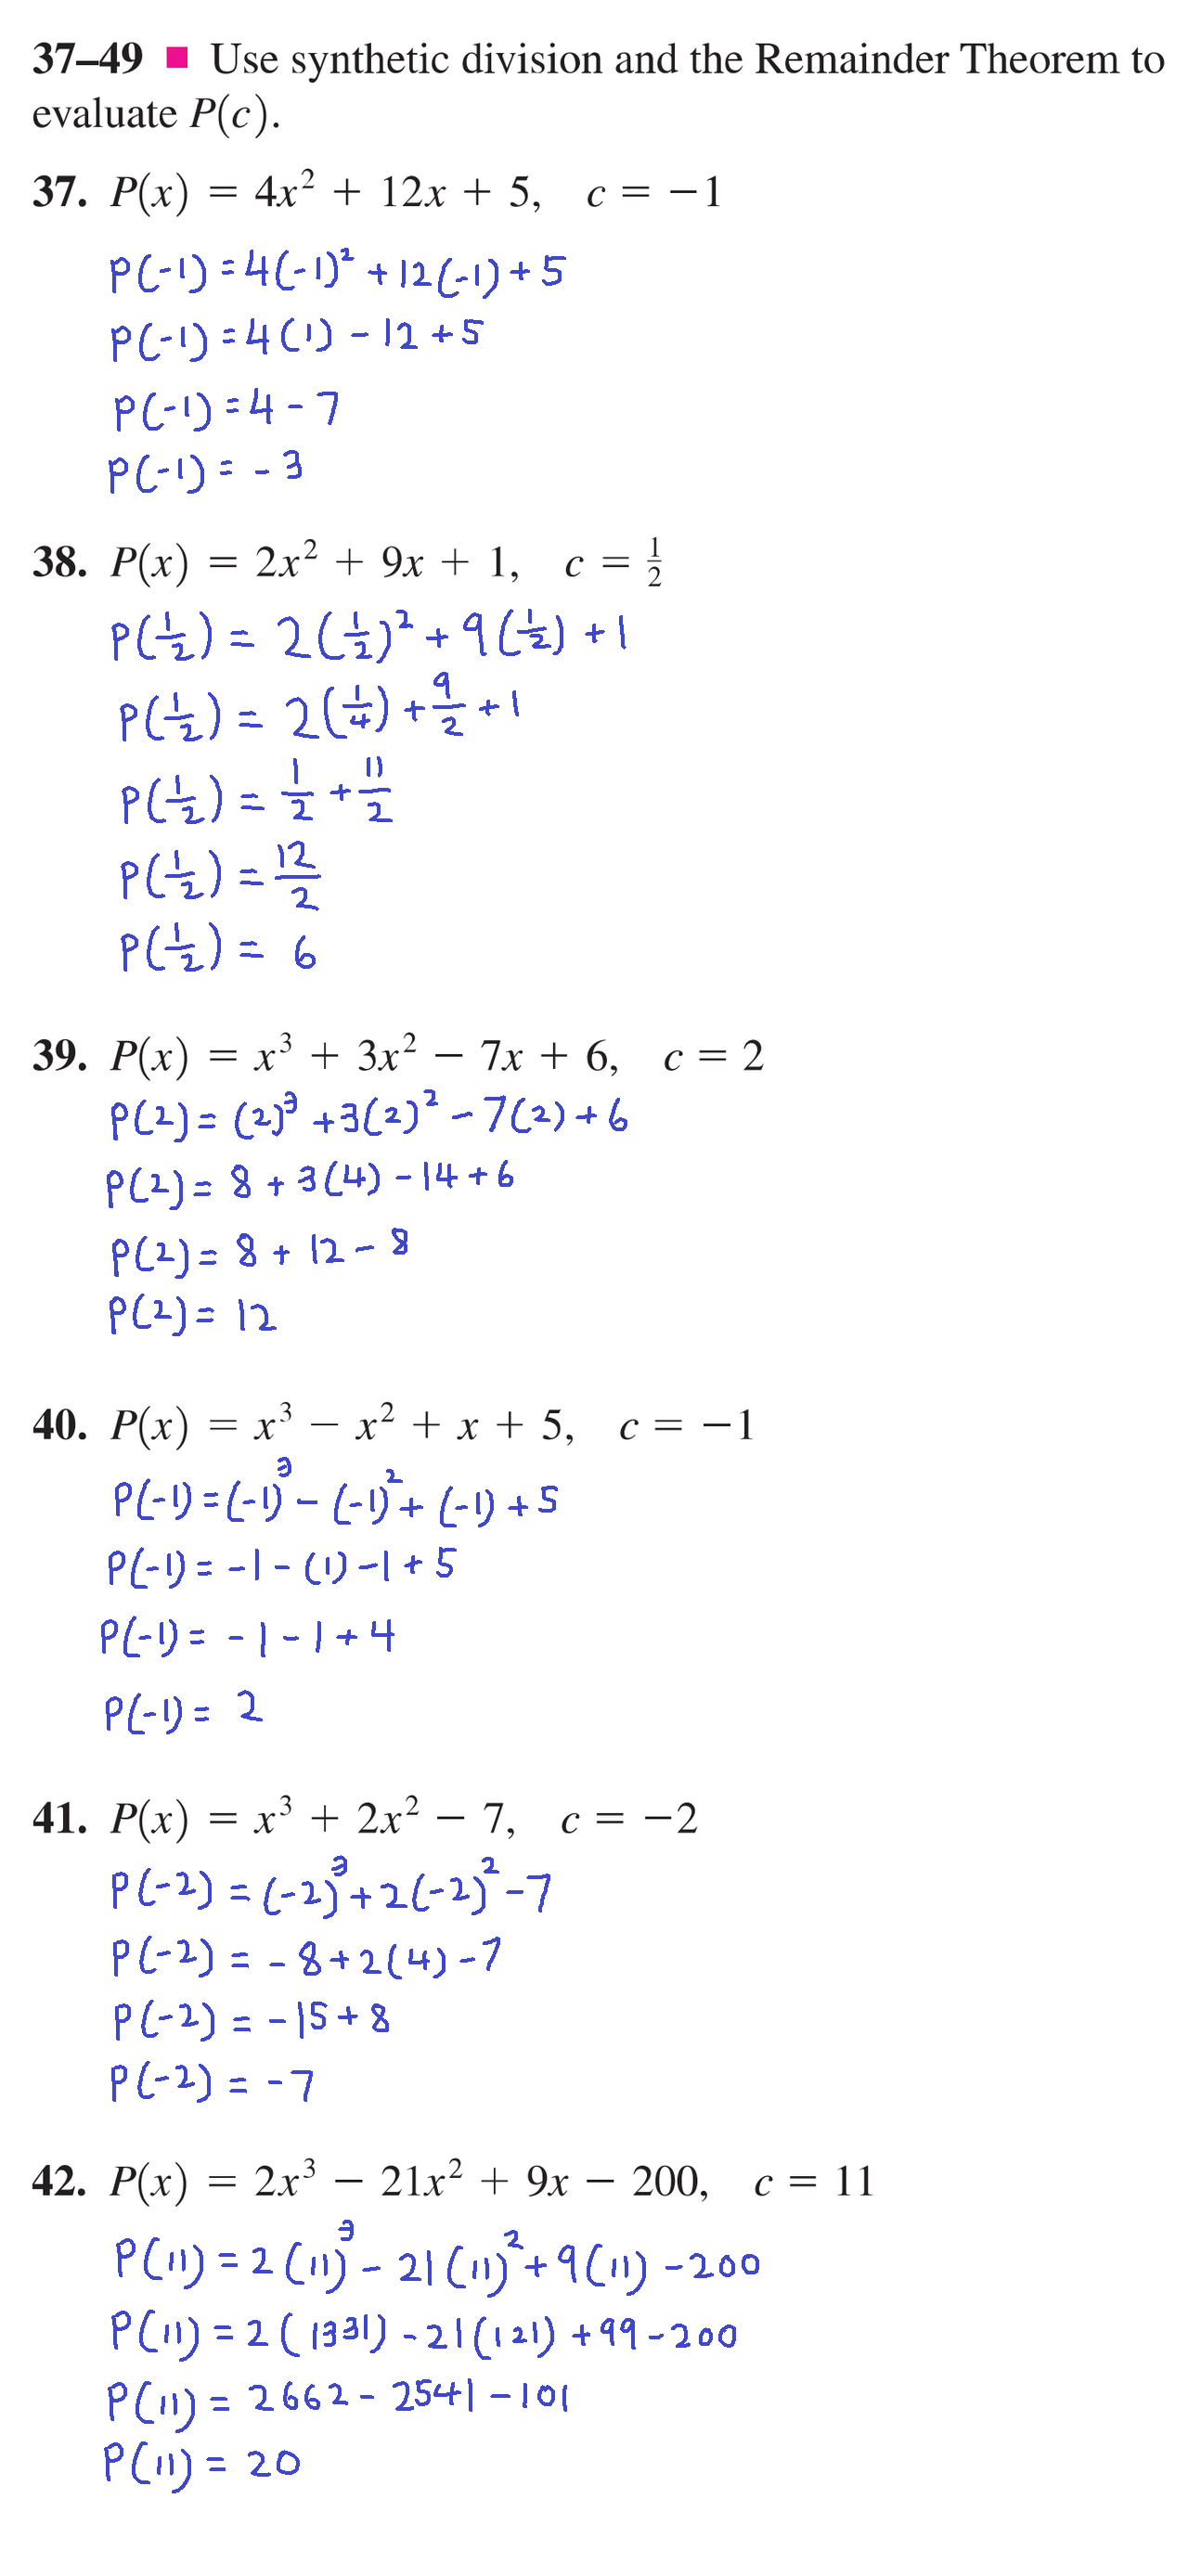 37–49 ■ Use synthetic division and the Remainder Theorem to
evaluate P(c).
37. P(x) = 4x² + 12x + 5, c = −1
P(-1) = 4(-1)² + 12(-1) + 5
P(-1) = 4(1) - 12 + 5
P(-1) = 4 - 7
P(-1) = - 3
38. P(x) = 2x² + 9x + 1, c = 1/2
P(1/2) = 2(1/2)² + 9(1/2) + 1
P(1/2) = 2(1/4) + 9/2 + 1
P(1/2) = 1/2 + 11/2
P(1/2) = 12/2
P(1/2) = 6
39. P(x) = x³ + 3x² − 7x + 6, c = 2
P(2) = (2)³ + 3(2)² - 7(2) + 6
P(2) = 8 + 3(4) - 14 + 6
P(2) = 8 + 12 - 8
P(2) = 12
40. P(x) = x³ − x² + x + 5, c = −1
P(-1) = (-1)³ - (-1)² + (-1) + 5
P(-1) = -1 - (1) - 1 + 5
P(-1) = - 1 - 1 + 4
P(-1) = 2
41. P(x) = x³ + 2x² − 7, c = −2
P(-2) = (-2)³ + 2(-2)² - 7
P(-2) = - 8 + 2(4) - 7
P(-2) = - 15 + 8
P(-2) = - 7
42. P(x) = 2x³ − 21x² + 9x − 200, c = 11
P(11) = 2(11)³ - 21(11)² + 9(11) - 200
P(11) = 2(1331) - 21(121) + 99 - 200
P(11) = 2662 - 2541 - 101
P(11) = 20